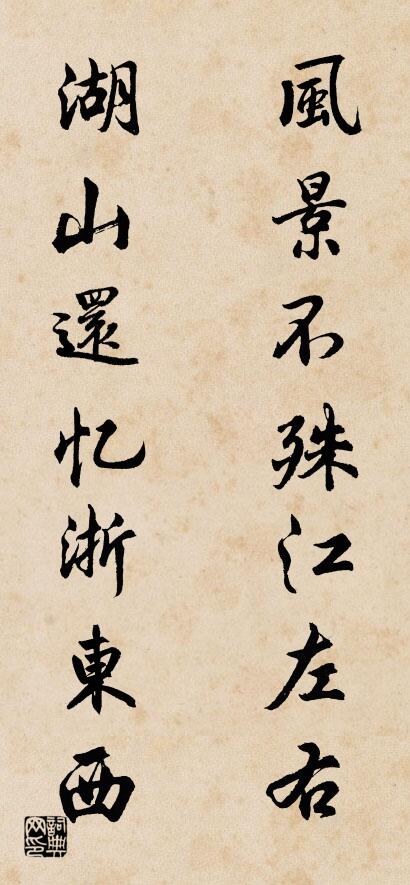 風景不殊江左右
湖山還忆浙東西
詞典网印